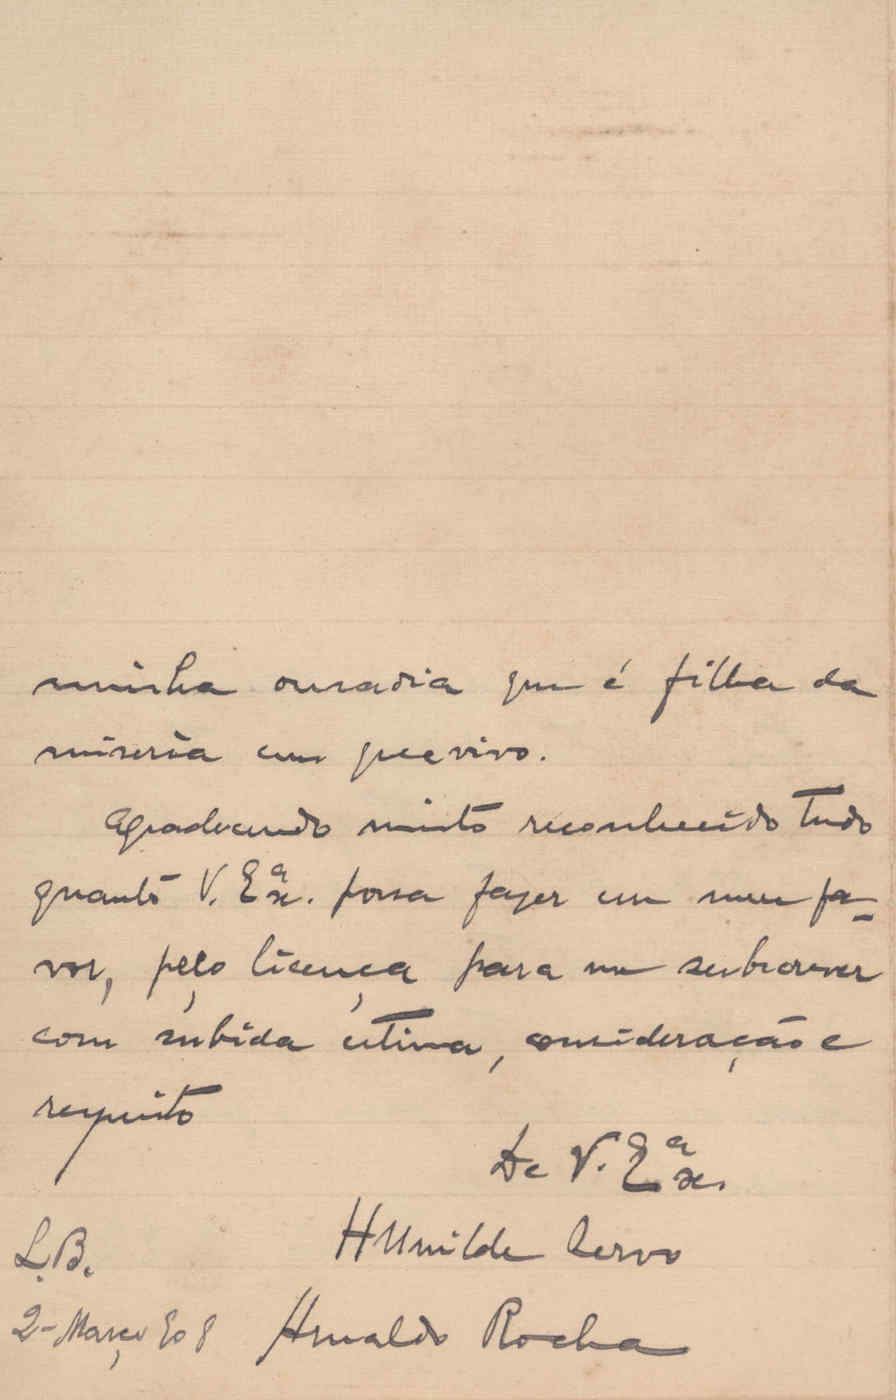 minha ousadia que é filha da
miseria em que vivo.
Agradecendo muito reconhecido tudo
quanto V. Exª. possa fazer em meu fa-
vor, peço licença para me subscrever
com subida estima, consideração e
respeito
De V. Exª.
Humilde Servo
L.B.
2-Março 908 Arnaldo Rocha